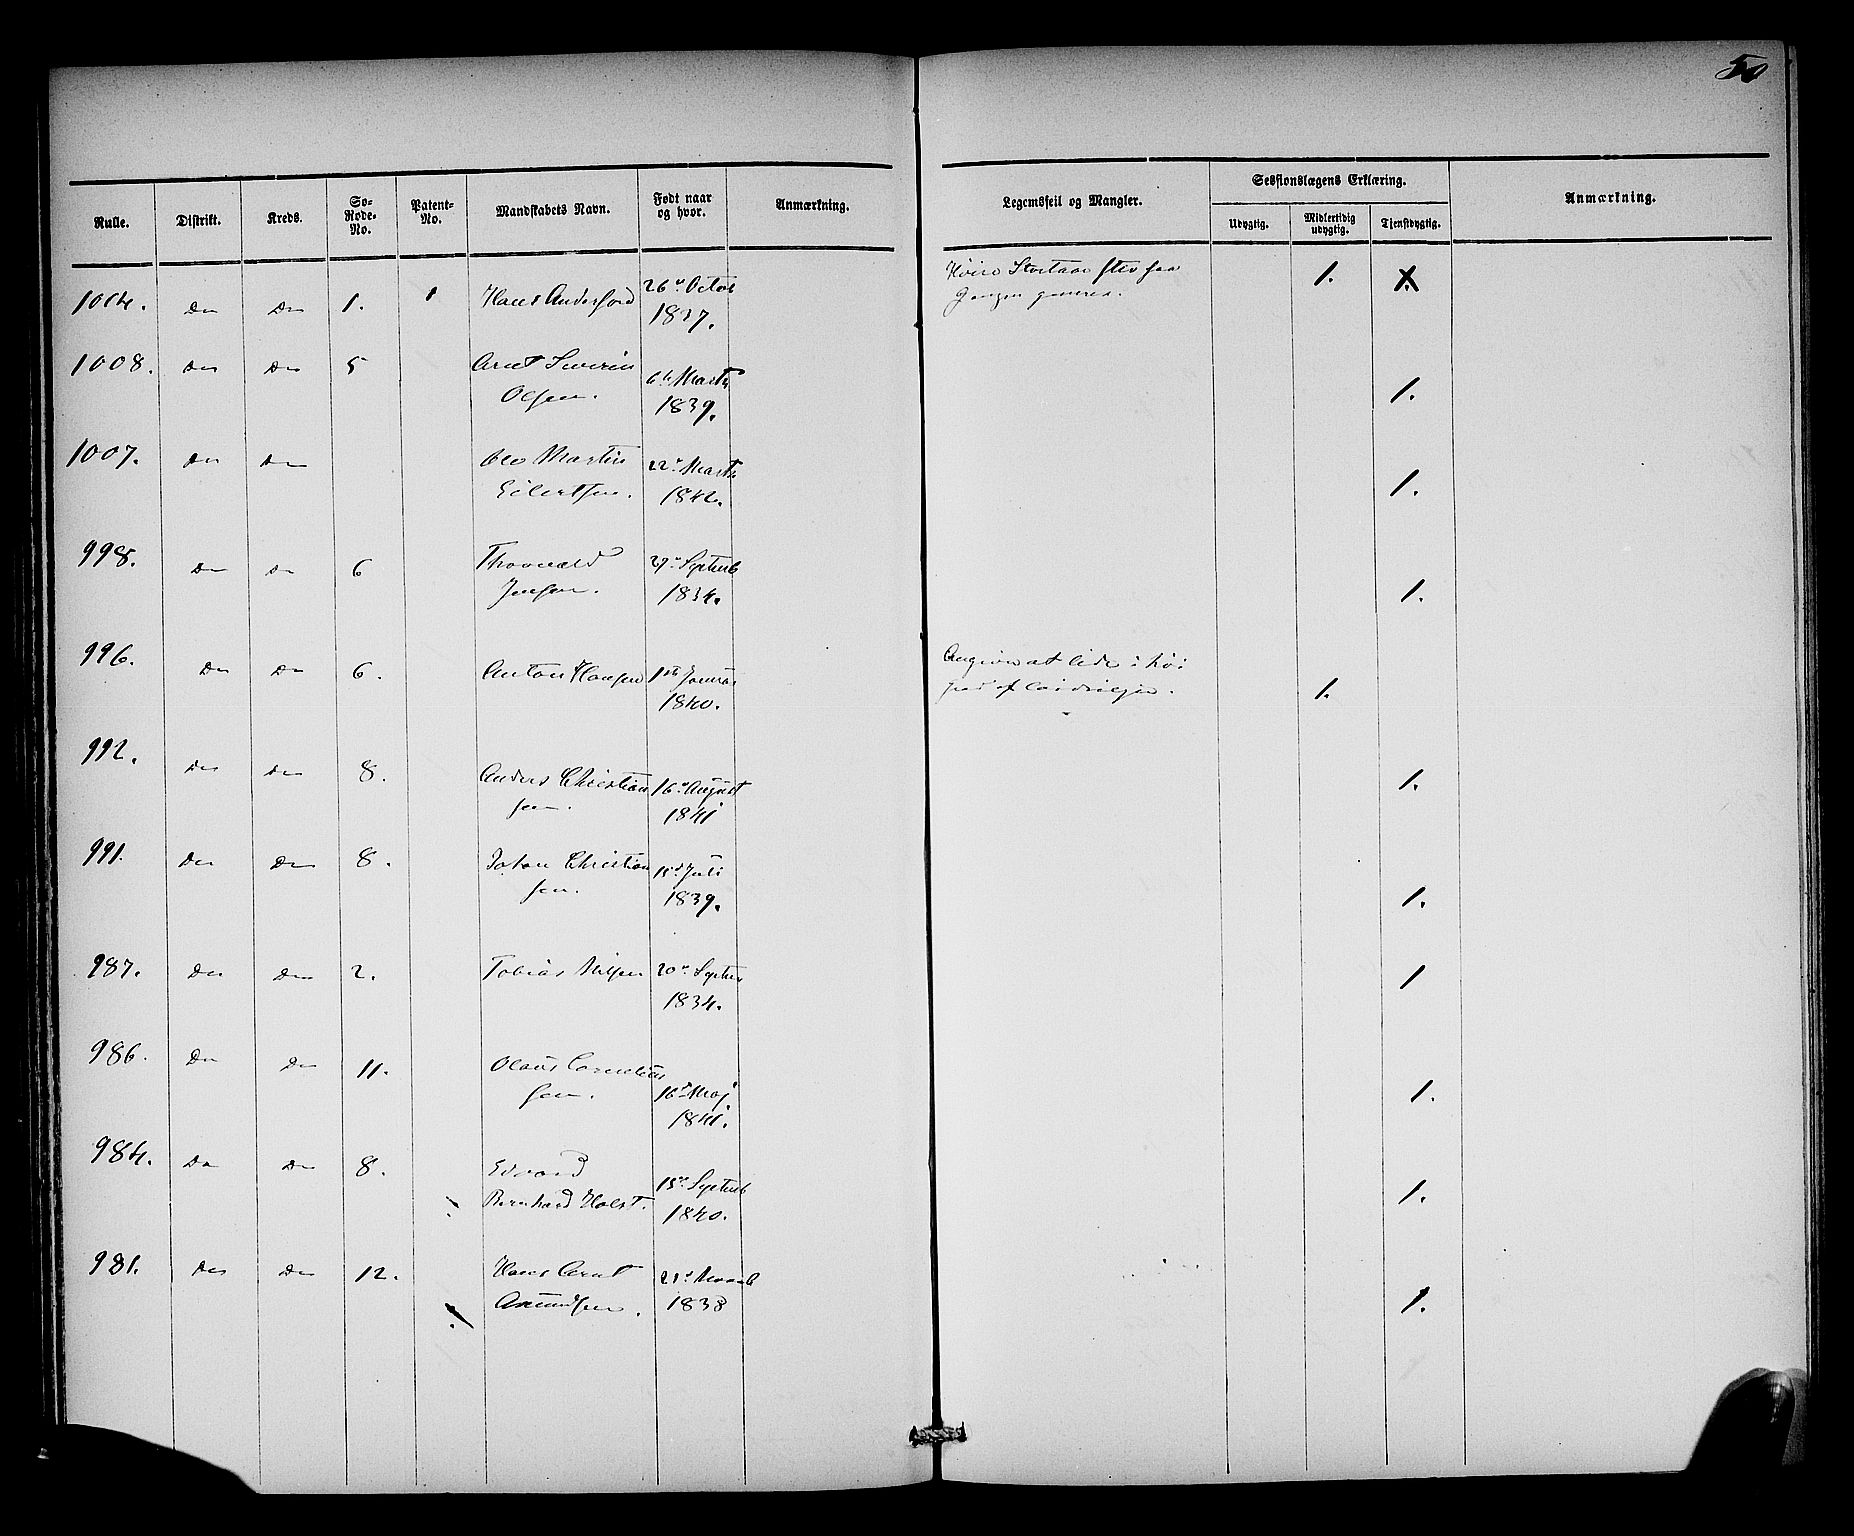 50
Rulle. Distrikt. Kreds. So-Rode-No. Patent-No. Mandskabets Navn. Født naar og hvor. Anmærkning.
Legemsfeil og Mangler. Sessionslægens Erklæring. Udygtig. Midlertidig udygtig. Tjenstdygtig. Anmærkning.
1004. Do Do 1. 1 Hans Anderssen 26de Octob Høire Stortaa stiv saa 1. X
1837. Gangen generes.
1008. Do Do 5 Arnt Severin 6te Marts
Olsen. 1839. 1.
1007. Do Do Ole Martin 22de Marts
Eilertsen. 1842. 1.
998. Do Do 6 Thorvald 27de Septemb
Jensen. 1834. 1.
996. Do Do 6. Anton Hansen 1ste Januar Angiver at lide i høi
1840. Grad af 1.
992. Do Do 8. Anders Christian 16de August 1.
sen. 1841
991. Do Do 8. Johan Christian 15de Juli
sen. 1839. 1.
987. Do Do 2. Tobias Nilsen 20de Septem 1
1834.
986. Do Do 11. Olaus Cornelius
sen. 16de Maj 1.
1841.
984. Do Do 8. Edvard 15de Septemb
Bernhard Holst. 1840. 1.
981. Do Do 12. Hans Arnt 21de Novemb
Asmundsen. 1838 1.